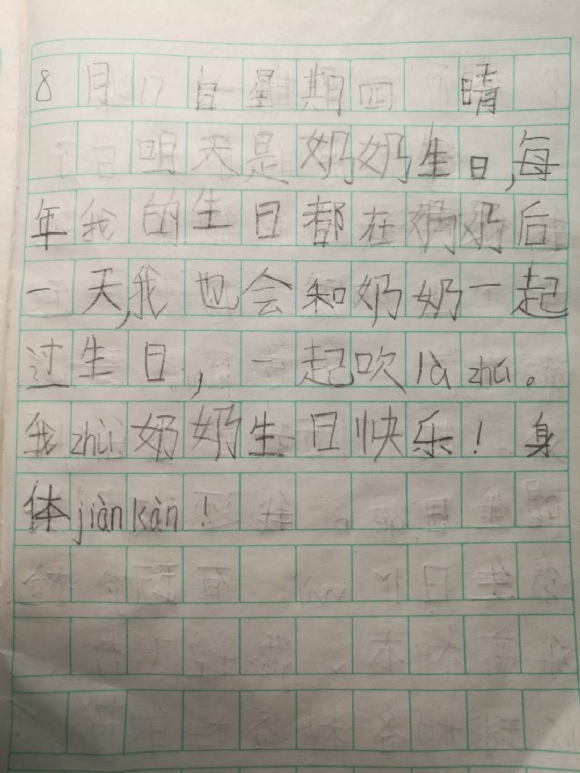 8月17日星期四 晴
明天是奶奶生日,每
年我的生日都在奶奶后
一天,我也会和奶奶一起
过生日,一起吹là zhú。
我zhù奶奶生日快乐!身
体jiàn kàn!